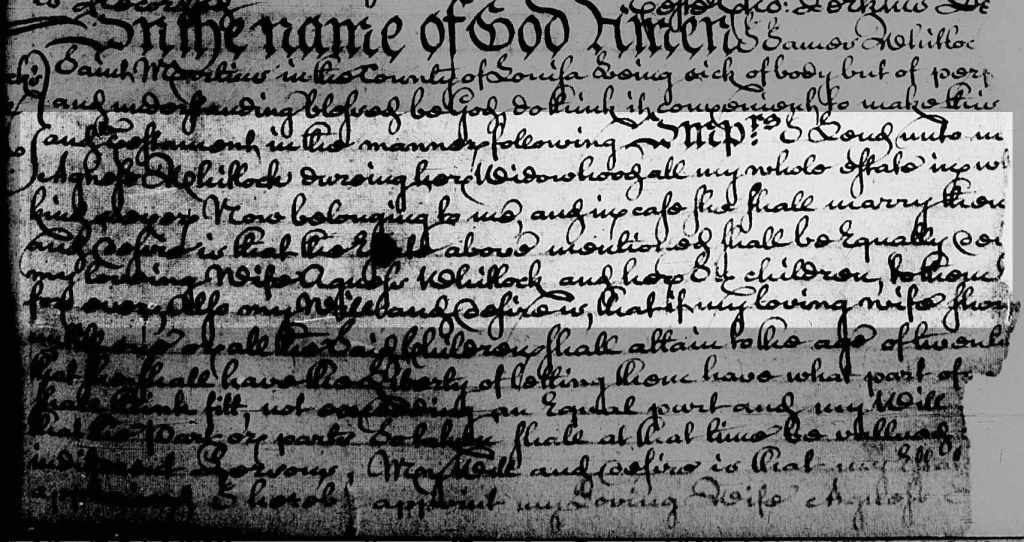 In the name of God Amen I James Whitloc
Saint Martins in the County of Louisa being sick of body but of per
and understanding blessed be God do think it convenient to make this
and Testament in the manner following Imprs I Lend unto m
Agness Whitlock dureing her Widowhood all my whole Estate in
kind soever Now belonging to me, and in case she shall marry then
and desire is that the above mentioned shall be Equally
my loving Wife Agness Whitlock and her Six children, to them
for ever, Also my Will and desire is, that if my loving wife
or all the said Children shall attain to the age of twent
that she shall have the Liberty of letting them have what part of
think fitt, not exceeding an Equal part and my Will
that the Part or parts So taken shall at that time be vallued
indifferent persons, My Will and desire is that my
I hereby appoint my Loving Wife Agness